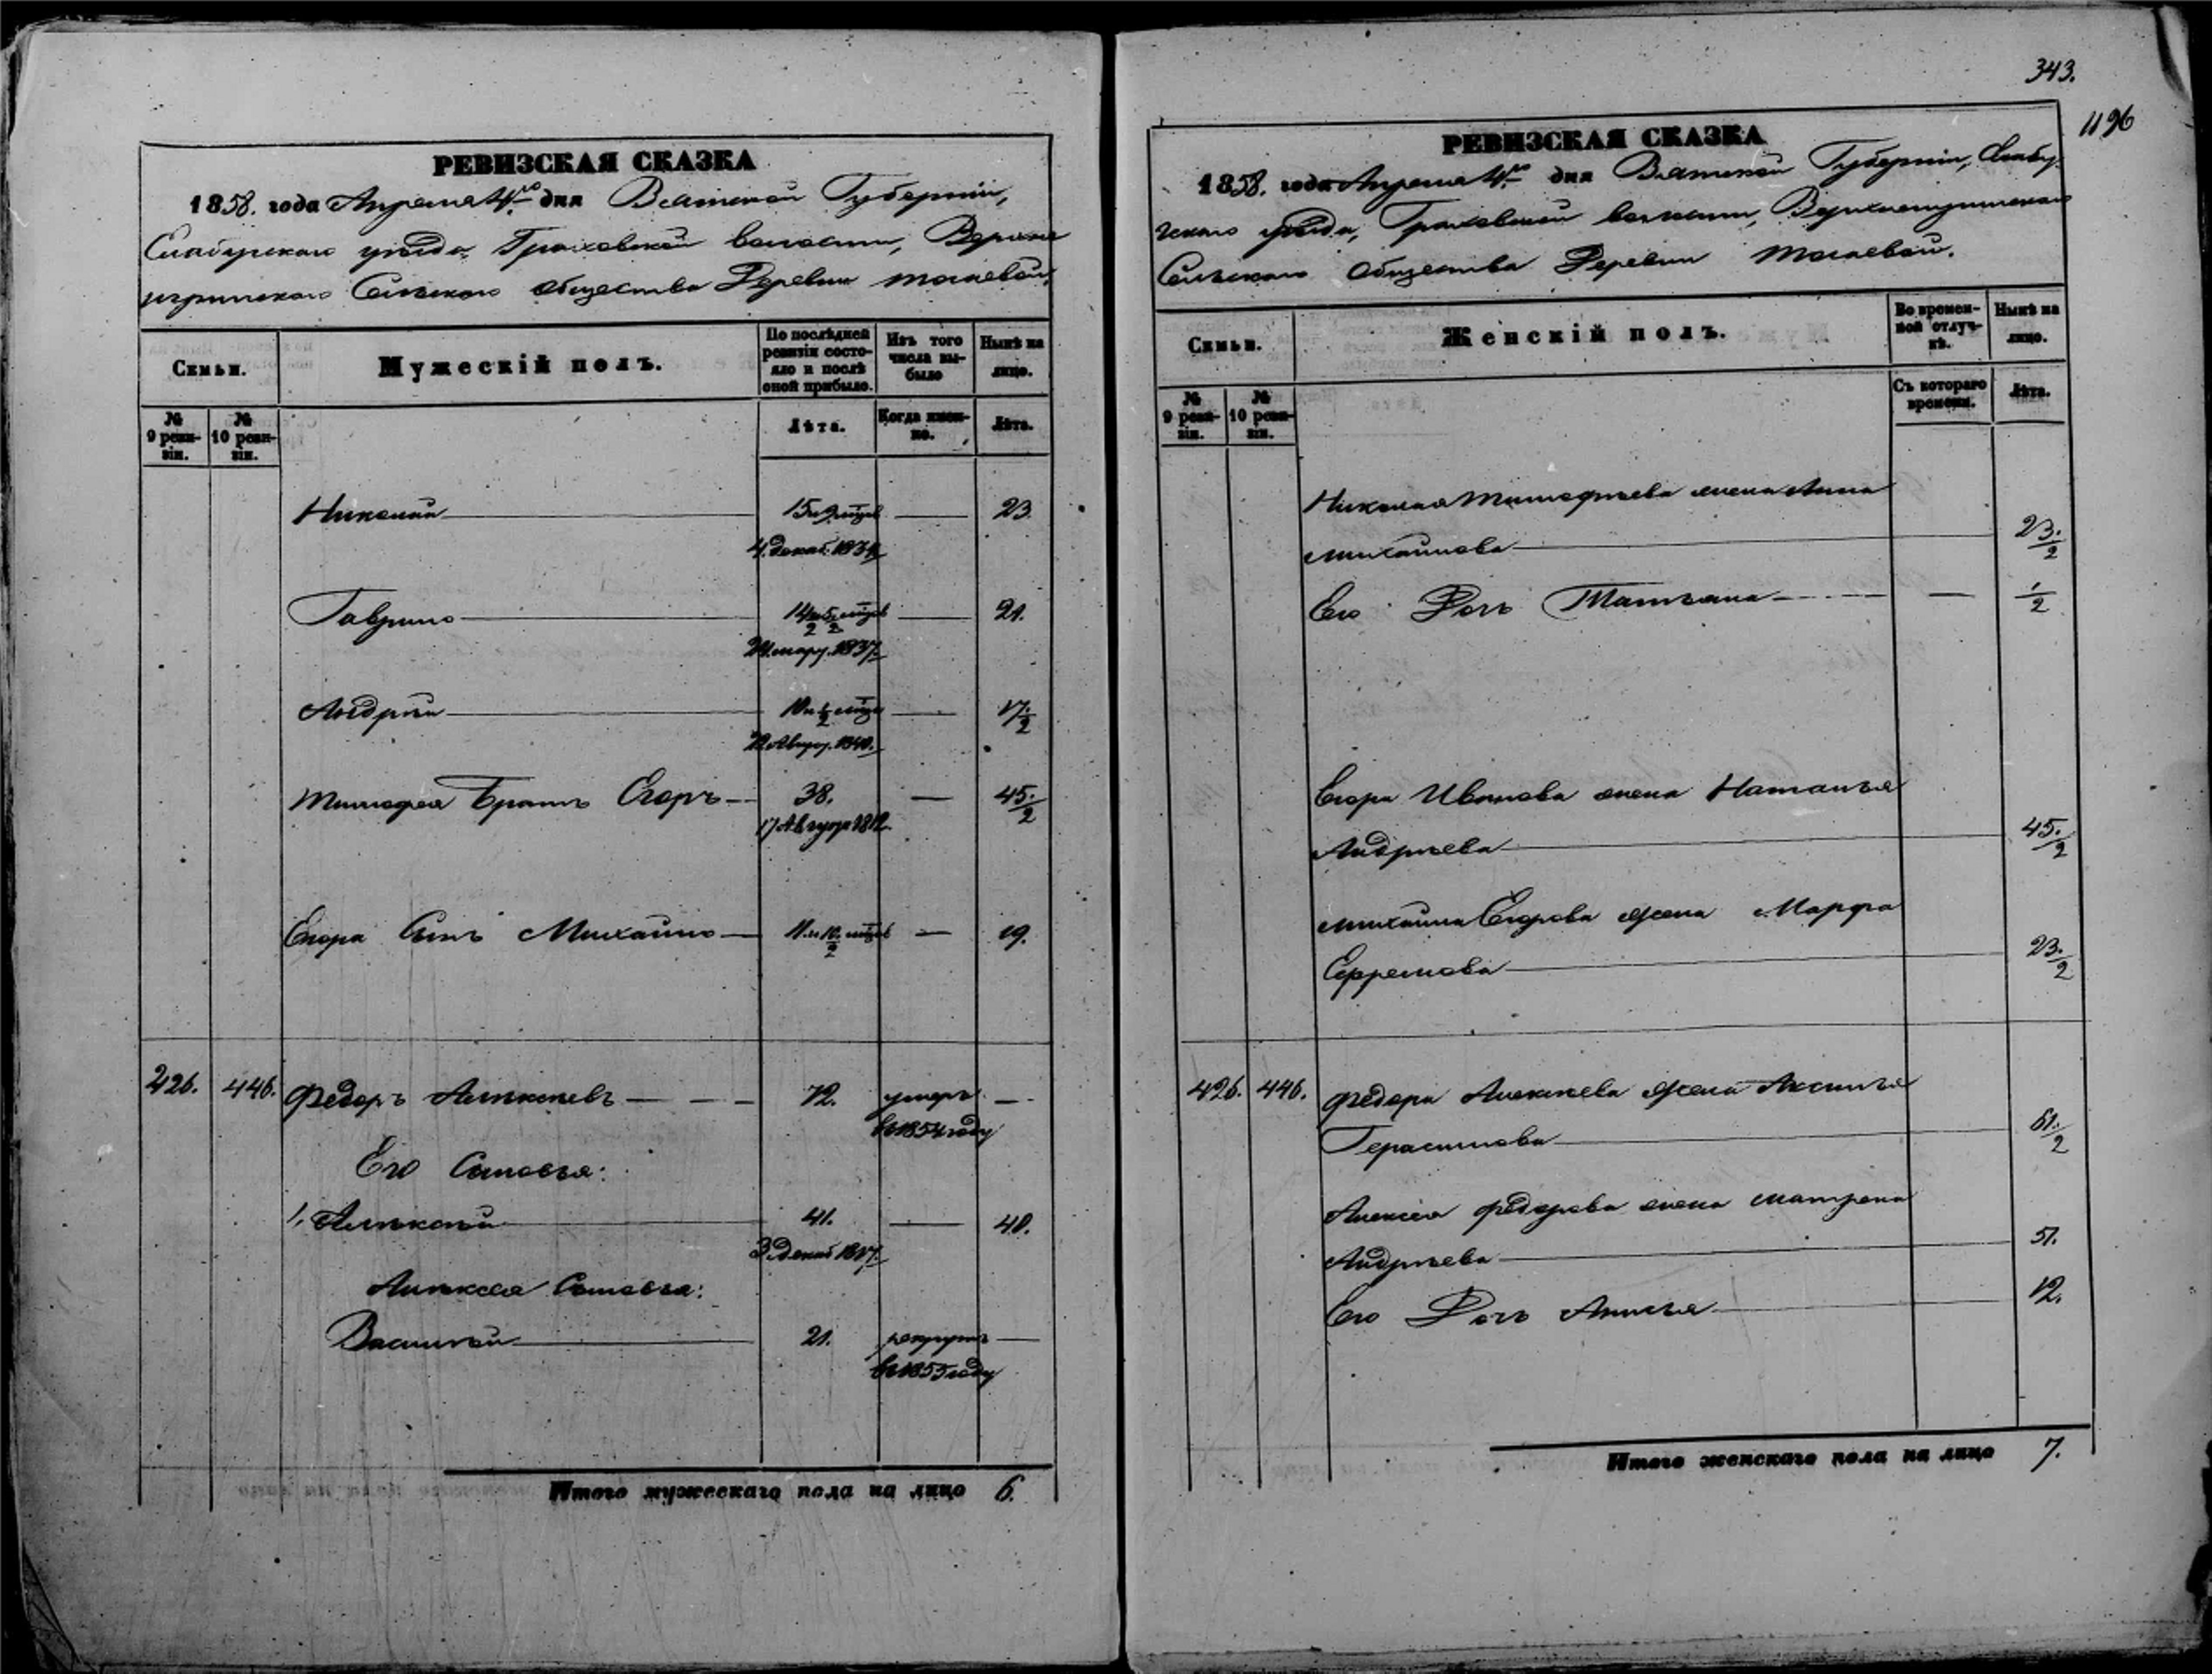 РЕВИЗСКАЯ СКАЗКА
1858. года Апреля 4го дня Вятской Губерніи,
Елабужскаго уѣзда Граховской волости, Верхне
игринскаго Сельскаго общества Деревни
Семьи.
Мужескій полъ.
По послѣдней ревизіи состояло и послѣ оной прибыло.
Изъ того числа выбыло
Нынѣ на лицо.
№ 9 ревизіи.
№ 10 ревизіи.
Лѣта.
Когда именно.
Лѣта.
Николай 15 и 9 мѣсцов — 23.
4. декаб. 1834
Гаврило — 21.
24. мар. 1837
Андрей — 17 1/2
22 Авгус. 1840.
Тимофея Братъ Егоръ 38. — 45 1/2
17 Августа 1812
Егора Сынъ Михайло — 19.
426. 446. Федоръ Алексѣевъ 72. умеръ —
въ 1854 году
Его Сыновья:
1. Алексѣй 41. — 40.
3. декаб 1817.
Алексѣя Сыновья:
Василей 21. рекрутъ —
въ 1855 году
Итого мужескаго пола на лицо 6.
343.
1196
РЕВИЗСКАЯ СКАЗКА
1858. года Апреля 4го дня Вятской Губерніи, Елабу
жскаго уѣзда, Граховской волости, Верхнеигринскаго
Сельскаго общества Деревни
Семьи.
Женскій полъ.
Во временной отлучкѣ.
Нынѣ на лицо.
№ 9 ревизіи.
№ 10 ревизіи.
Съ котораго времени.
Лѣта.
Николая Тимофѣева жена Анна
Михайлова 23 1/2
Его Дочь Татьяна — 1/2
Егора Иванова жена Наталья
Андрѣева 45 1/2
Михайла Егорова жена Марфа
Ефремова 23 1/2
426. 446. Федора Алексѣева жена Аксинья
Герасимова 61 1/2
Алексѣя Федорова жена Матрена
Андрѣева 51.
Его Дочь Анисья 12.
Итого женскаго пола на лицо 7.